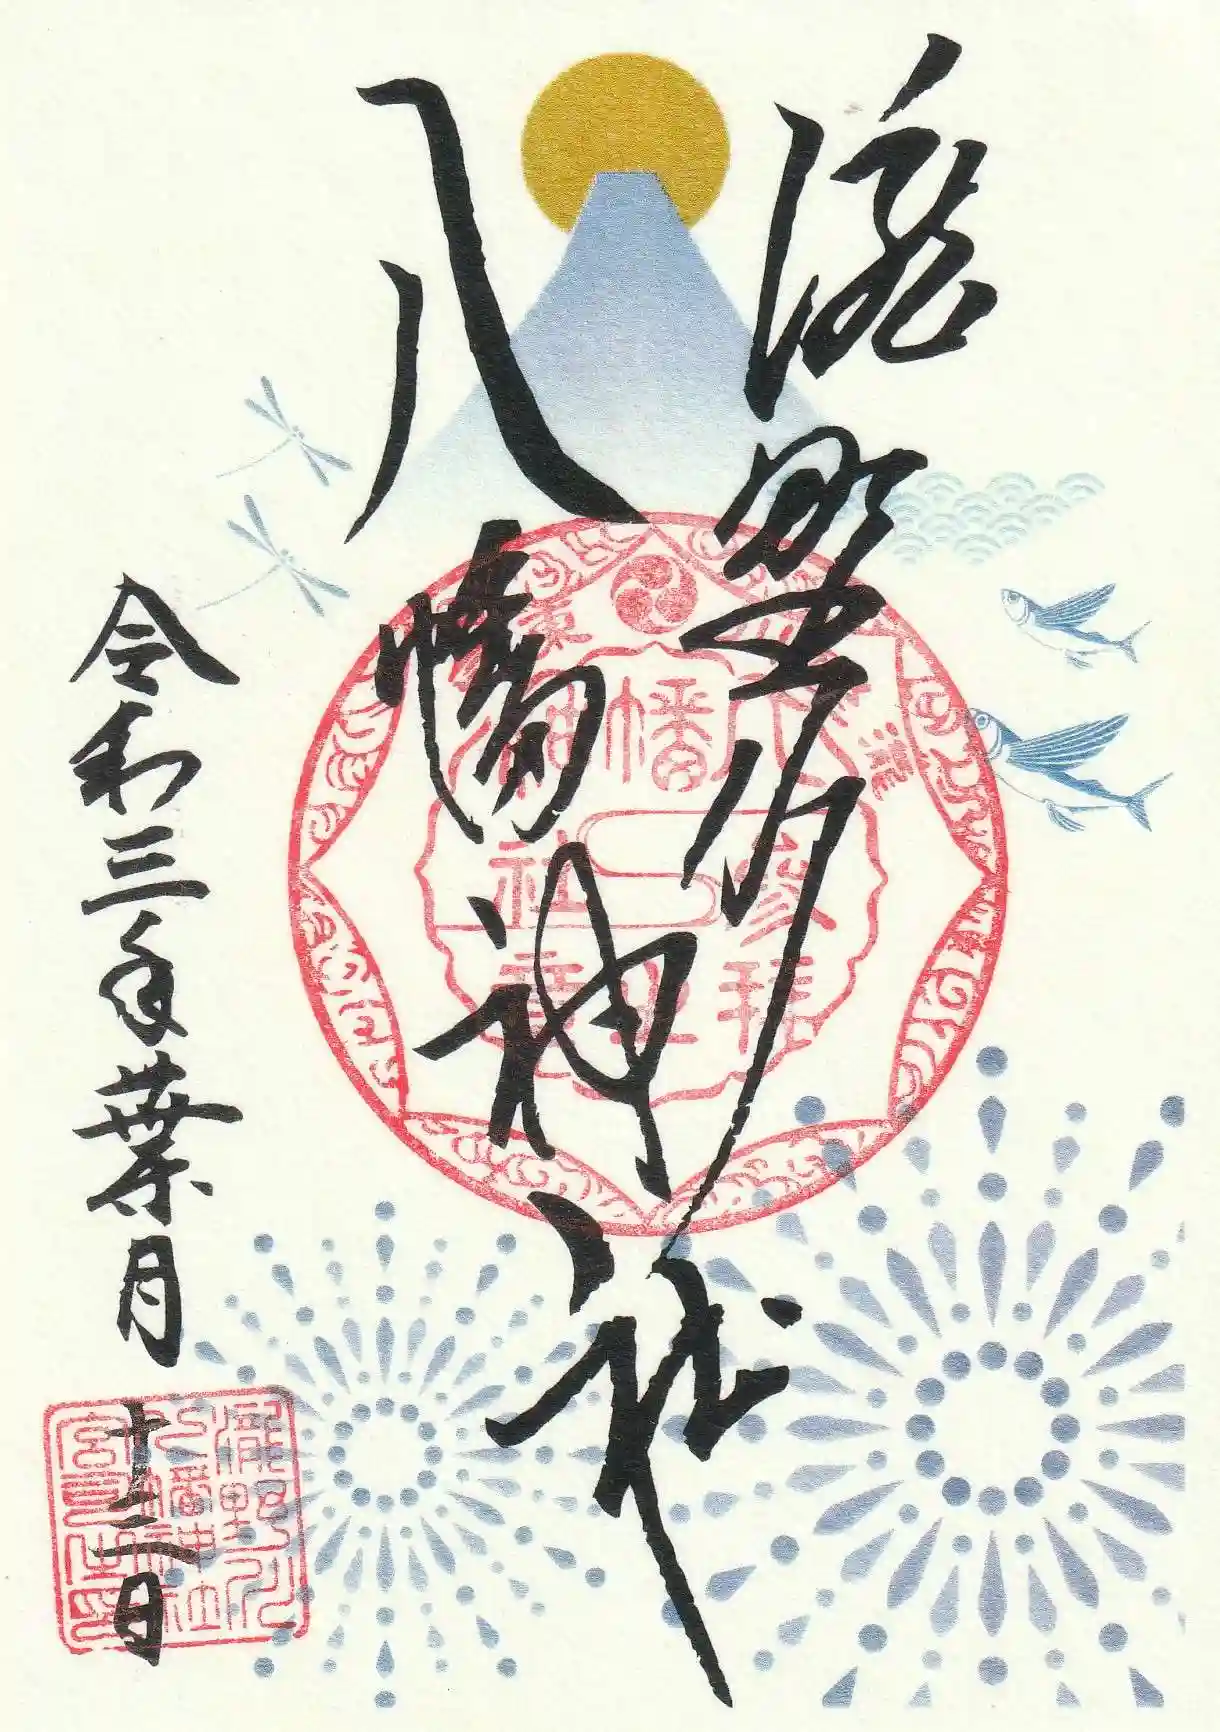 滝野川
八幡神社
令和三年葉月
十二日
八幡神社
参拝之章
瀧野川
八幡神社
宮司之印